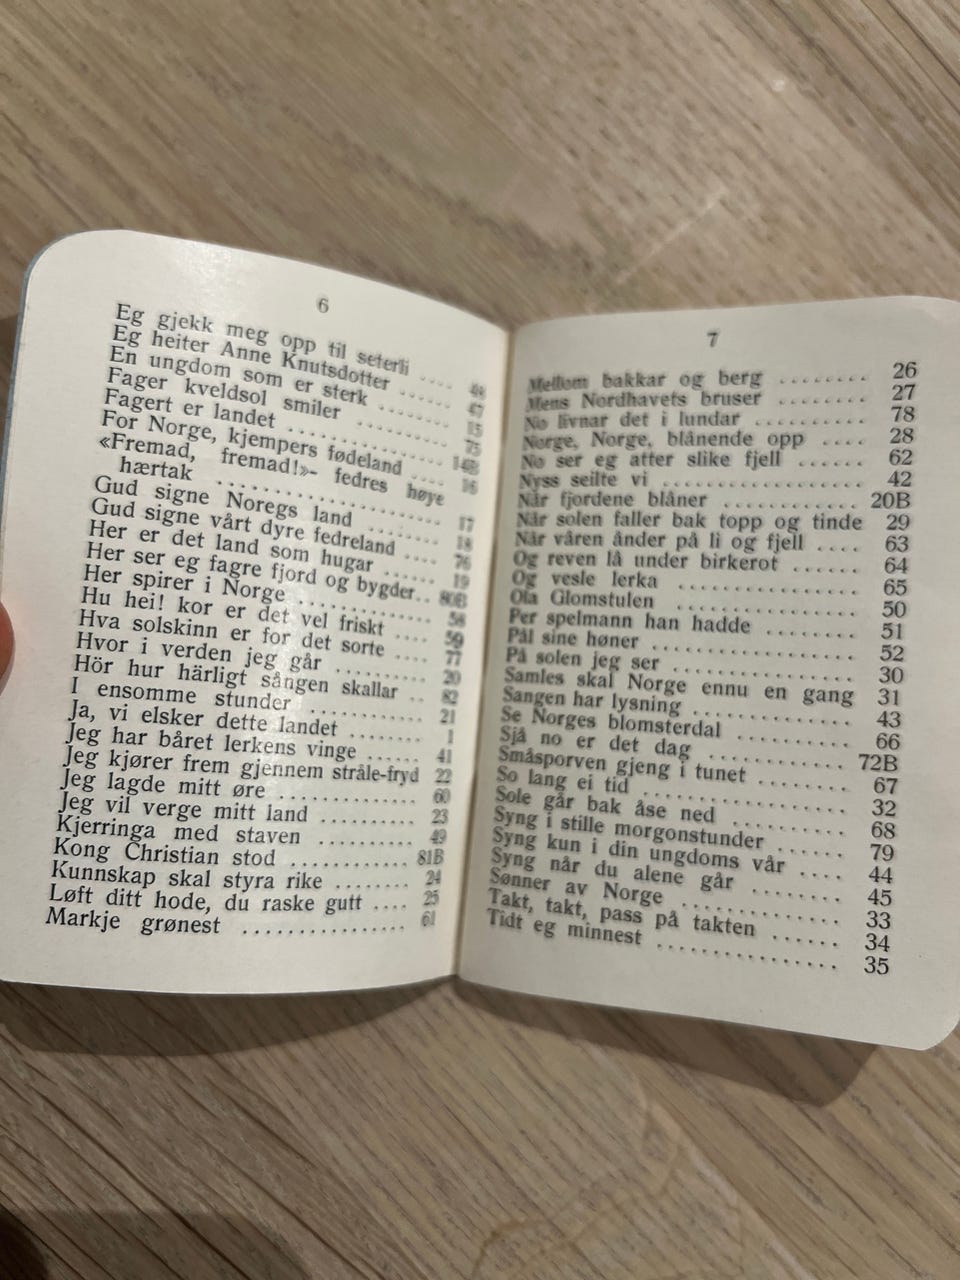 6
Eg gjekk meg opp til seterli .... 48
Eg heiter Anne Knutsdotter ...... 47
En ungdom som er sterk ........ 15
Fager kveldsol smiler .......... 75
Fagert er landet ............ 14B
For Norge, kjempers fødeland .... 16
«Fremad, fremad!»- fedres høye
hærtak .................... 17
Gud signe Noregs land ........ 18
Gud signe vårt dyre fedreland .... 76
Her er det land som hugar ...... 19
Her ser eg fagre fjord og bygder.. 80B
Her spirer i Norge ............ 58
Hu hei! kor er det vel friskt .... 59
Hva solskinn er for det sorte .... 77
Hvor i verden jeg går .......... 20
Hör hur härligt sången skallar .. 82
I ensomme stunder ............ 21
Ja, vi elsker dette landet ........ 1
Jeg har båret lerkens vinge ...... 41
Jeg kjører frem gjennem stråle-fryd 22
Jeg lagde mitt øre .............. 60
Jeg vil verge mitt land .......... 23
Kjerringa med staven .......... 49
Kong Christian stod ............ 81B
Kunnskap skal styra rike ........ 24
Løft ditt hode, du raske gutt .... 25
Markje grønest ................ 61
7
Mellom bakkar og berg ........ 26
Mens Nordhavets bruser ........ 27
No livnar det i lundar .......... 78
Norge, Norge, blånende opp .... 28
No ser eg atter slike fjell ...... 62
Nyss seilte vi ................ 42
Når fjordene blåner ............ 20B
Når solen faller bak topp og tinde 29
Når våren ånder på li og fjell .... 63
Og reven lå under birkerot ...... 64
Og vesle lerka ................ 65
Ola Glomstulen ................ 50
Per spelmann han hadde ........ 51
Pål sine høner ................ 52
På solen jeg ser ................ 30
Samles skal Norge ennu en gang 31
Sangen har lysning .............. 43
Se Norges blomsterdal .......... 66
Sjå no er det dag .............. 72B
Småsporven gjeng i tunet ........ 67
So lang ei tid .................. 32
Sole går bak åse ned .......... 68
Syng i stille morgonstunder ...... 79
Syng kun i din ungdoms vår .... 44
Syng når du alene går .......... 45
Sønner av Norge .............. 33
Takt, takt, pass på takten ...... 34
Tidt eg minnest ................ 35